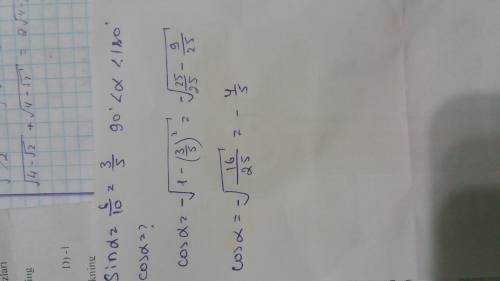 √(4-√2) + √(4-√2) = 2√4
Sinα = 6/10 = 3/5 90° < α < 180°
cosα = ?
cosα = -√(1 - (3/5)²) = -√(25/25 - 9/25)
cosα = -√(16/25) = -4/5
D) -1